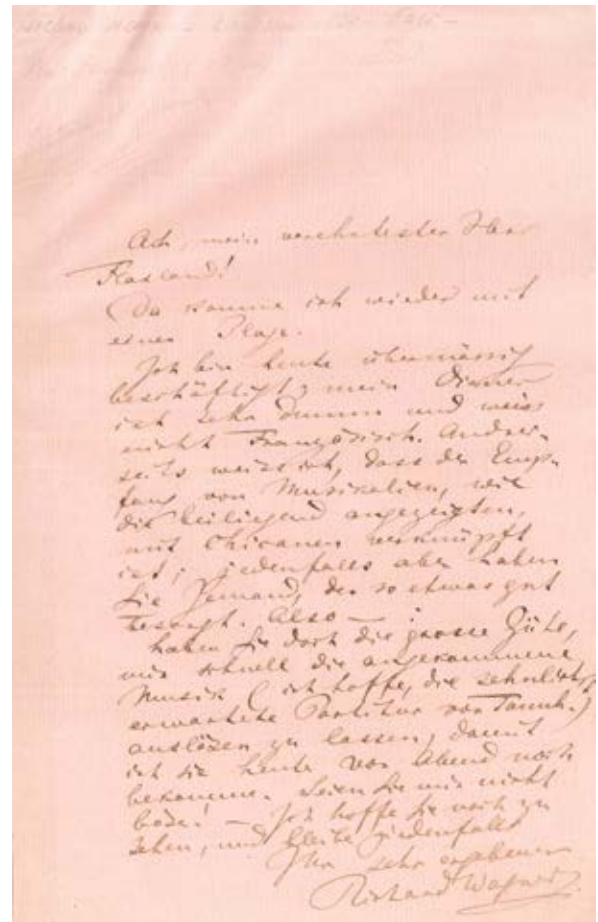 Ach, mein verehrtester Herr
Flaxland!
Da komme ich wieder mit
einer Plage.
Ich bin heute übermässig
beschäftigt, mein Diener
ist sehr dumm und weiss
nicht Französisch. Andrer-
seits weiss ich, dass der Emp-
fang von Musikalien, wie
die beiliegend angezeigten,
mit Chicanen verknüpft
ist; jedenfalls aber haben
Sie Jemand, der so etwas gut
besorgt. Also — :
haben Sie doch die grosse Güte,
mir schnell die angekommene
Musik (ich hoffe, die sehnlichst
erwartete Partitur von Tannh.)
auslösen zu lassen, damit
ich sie heute vor Abend noch
bekomme. Seien Sie mir nicht
böse! — Ich hoffe Sie noch zu
sehen, und bleibe jedenfalls
Ihr sehr ergebener
Richard Wagner